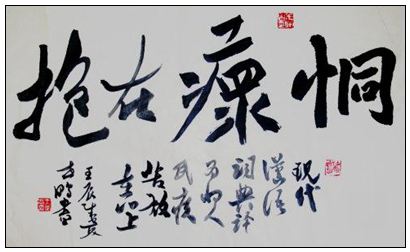 恫瘝在抱
现代
漢语
词典释
为把人
民疾
苦放
在心上
壬辰
书